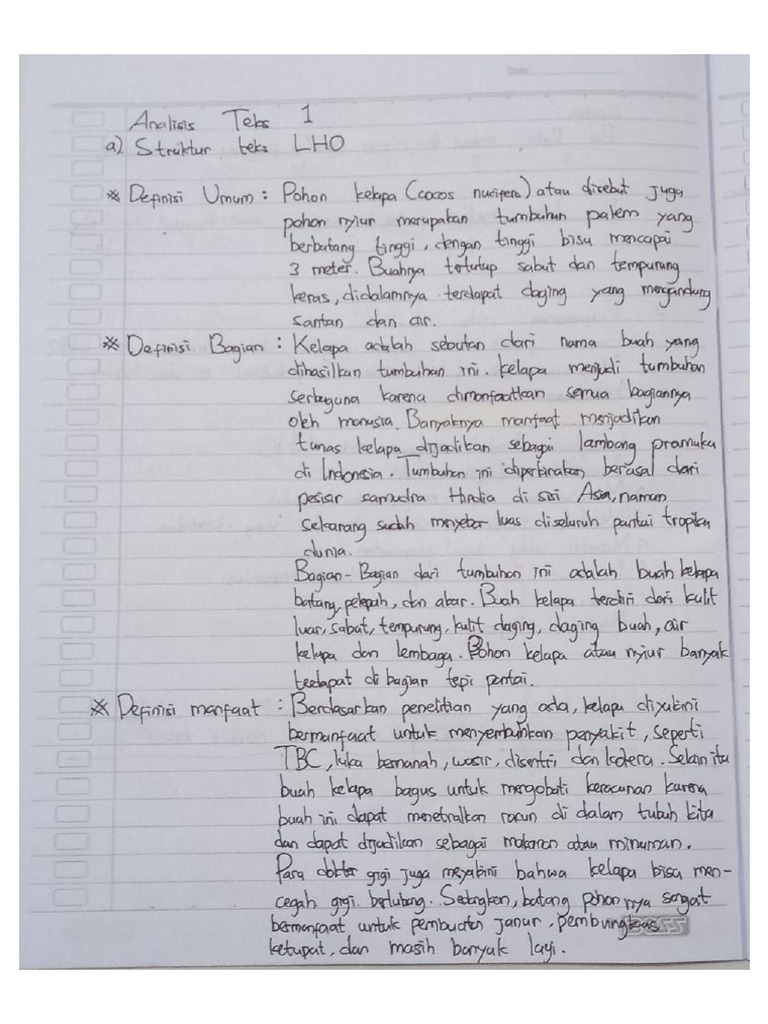 Date
Analisis Teks 1
a) Struktur teks LHO
* Definisi Umum : Pohon kelapa (cocos nucifera) atau disebut juga
pohon nyiur merupakan tumbuhan palem yang
berbatang tinggi, dengan tinggi bisa mencapai
3 meter. Buahnya tertutup sabut dan tempurung
keras, didalamnya terdapat daging yang mengandung
santan dan air.
* Definisi Bagian : Kelapa adalah sebutan dari nama buah yang
dihasilkan tumbuhan ini. kelapa menjadi tumbuhan
serbaguna karena dimanfaatkan semua bagiannya
oleh manusia. Banyaknya manfaat menjadikan
tunas kelapa dijadikan sebagai lambang pramuka
di Indonesia. Tumbuhan ini diperkirakan berasal dari
pesisir samudra Hindia di sisi Asia, namun
sekarang sudah menyebar luas diseluruh pantai tropika
dunia.
Bagian-Bagian dari tumbuhan ini adalah buah kelapa
batang, pelepah, dan akar. Buah kelapa terdiri dari kulit
luar, sabut, tempurung, kulit daging, daging buah, air
kelapa dan lembaga. Pohon kelapa atau nyiur banyak
terdapat di bagian tepi pantai.
* Definisi manfaat : Berdasarkan penelitian yang ada, kelapa diyakini
bermanfaat untuk menyembuhkan penyakit, seperti
TBC, luka bernanah, wasir, disentri dan kolera. Selain itu
buah kelapa bagus untuk mengobati keracunan karena
buah ini dapat menetralkan racun di dalam tubuh kita
dan dapat dijadikan sebagai makanan atau minuman.
Para dokter gigi juga meyakini bahwa kelapa bisa men-
cegah gigi berlubang. Sedangkan, batang pohon nya sangat
bermanfaat untuk pembuatan janur, pembungkus
ketupat, dan masih banyak lagi.
BOSS